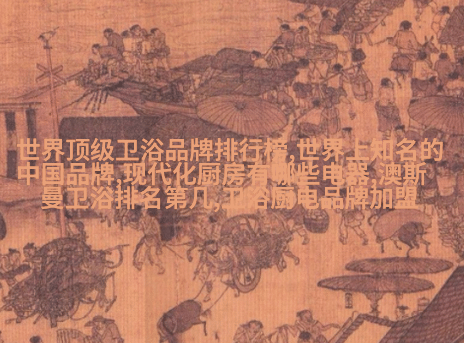 世界顶级卫浴品牌排行榜,世界上知名的
中国品牌,现代化厨房有哪些电器,澳斯
曼卫浴排名第几,卫浴厨电品牌加盟